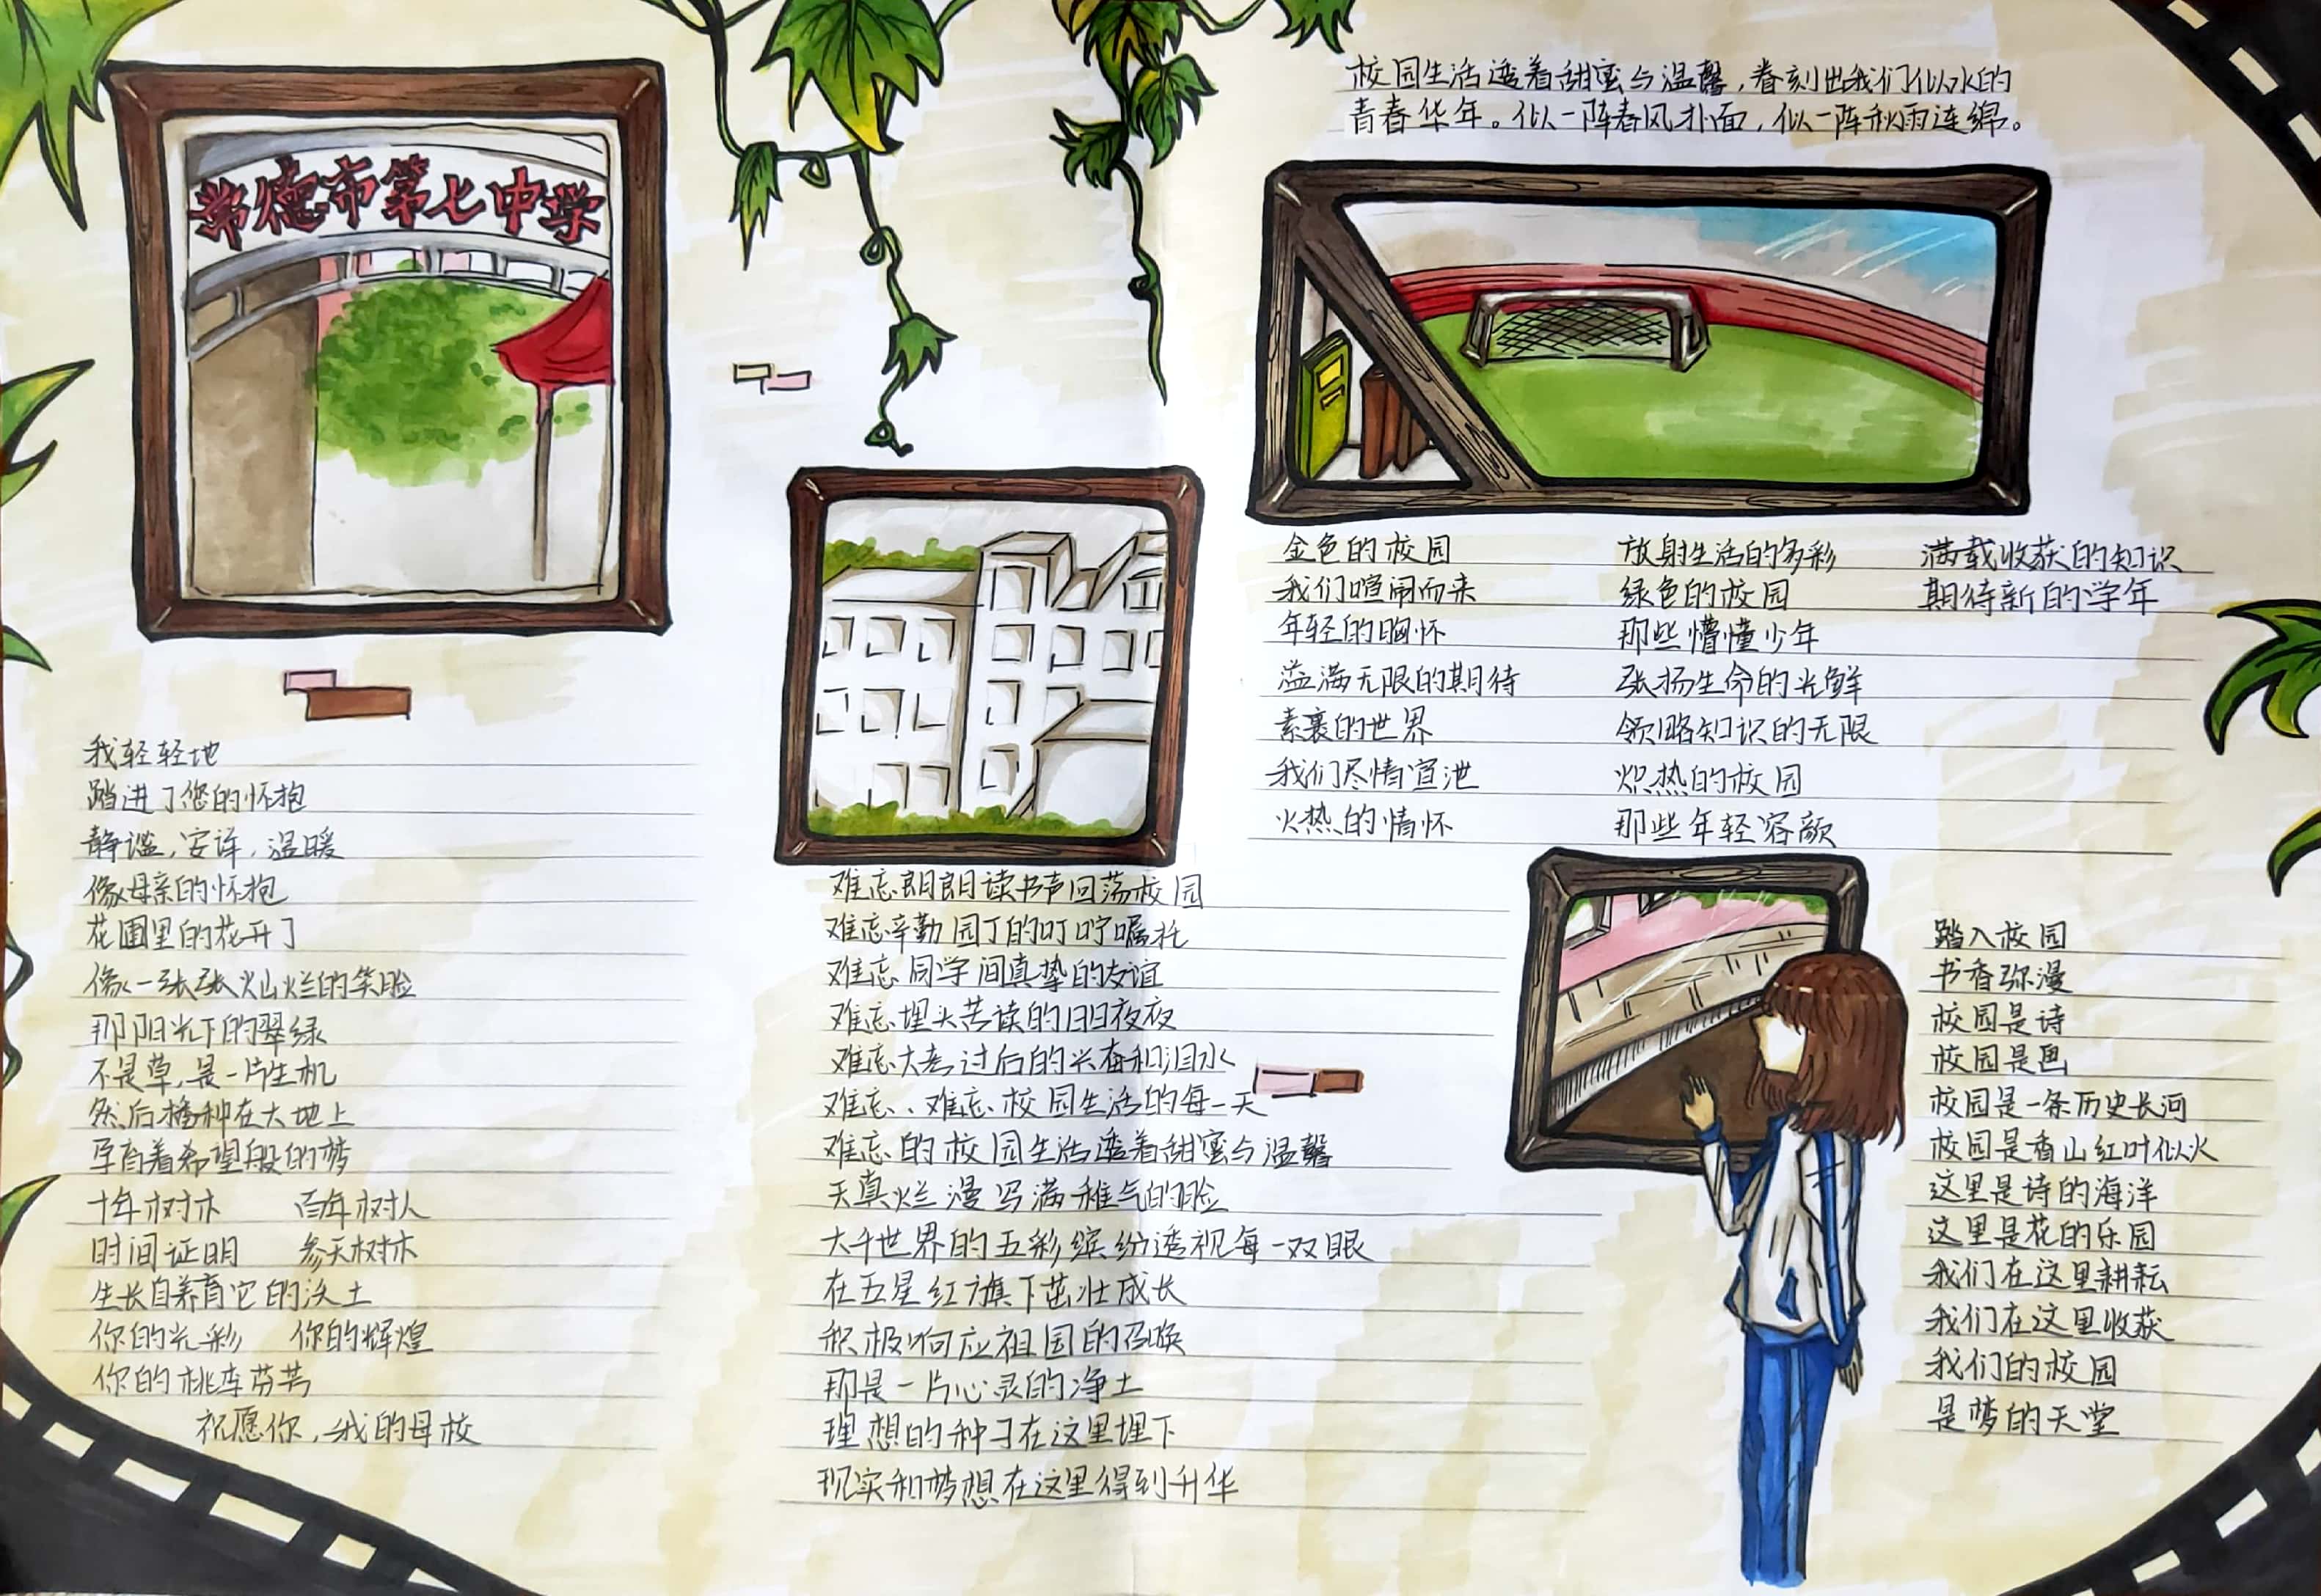 常德市第七中学
我轻轻地
踏进了您的怀抱
静谧,安详,温暖
像母亲的怀抱
花圃里的花开了
像一张张灿烂的笑脸
那阳光下的翠绿
不是草,是一片生机
然后播种在大地上
孕育着希望般的梦
十年树木 百年树人
时间证明 参天树木
生长自养育它的沃土
你的光彩 你的辉煌
你的桃李芬芳
祝愿你,我的母校
难忘朗朗读书声回荡校园
难忘辛勤园丁的叮咛嘱托
难忘同学间真挚的友谊
难忘埋头苦读的日日夜夜
难忘大考过后的兴奋和泪水
难忘、难忘校园生活的每一天
难忘的校园生活透着甜蜜与温馨
天真烂漫写满稚气的脸
大千世界的五彩缤纷透视每一双眼
在五星红旗下茁壮成长
积极响应祖国的召唤
那是一片心灵的净土
理想的种子在这里埋下
现实和梦想在这里得到升华
校园生活透着甜蜜与温馨,眷刻出我们似水的
青春华年。似一阵春风扑面,似一阵秋雨连绵。
金色的校园
我们喧闹而来
年轻的胸怀
溢满无限的期待
素裹的世界
我们尽情宣泄
火热的情怀
放射生活的多彩
绿色的校园
那些懵懂少年
张扬生命的光鲜
领略知识的无限
炽热的校园
那些年轻容颜
满载收获的知识
期待新的学年
踏入校园
书香弥漫
校园是诗
校园是画
校园是一条历史长河
校园是香山红叶似火
这里是诗的海洋
这里是花的乐园
我们在这里耕耘
我们在这里收获
我们的校园
是梦的天堂